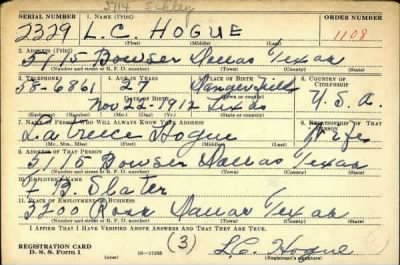 3714 Schley
SERIAL NUMBER 1. NAME (Print) ORDER NUMBER
2329 L. C. HOGUE 1108
(First) (Middle) (Last)
2. ADDRESS (Print)
5115 Bowser Dallas Texas
(Number and street or R. F. D. number) (Town) (County) (State)
3. TELEPHONE 4. AGE IN YEARS 5. PLACE OF BIRTH 6. COUNTRY OF CITIZENSHIP
58-6861 27
DATE OF BIRTH
Nov 22 1912 Texas U.S.A.
7. NAME OF PERSON WHO WILL ALWAYS KNOW YOUR ADDRESS 8. RELATIONSHIP OF THAT PERSON
Hogue Wife
(Mr., Mrs., Miss) (First) (Middle) (Last)
9. ADDRESS OF THAT PERSON
5115 Bowser Dallas Texas
(Number and street or R. F. D. number) (Town) (County) (State)
10. EMPLOYER'S NAME
F. B. Slater
11. PLACE OF EMPLOYMENT OR BUSINESS
Ross Dallas Texas
(Number and street or R. F. D. number) (Town) (County) (State)
I AFFIRM THAT I HAVE VERIFIED ABOVE ANSWERS AND THAT THEY ARE TRUE.
REGISTRATION CARD
D. S. S. Form 1 (3) L.C. Hogue
(Registrant's signature)